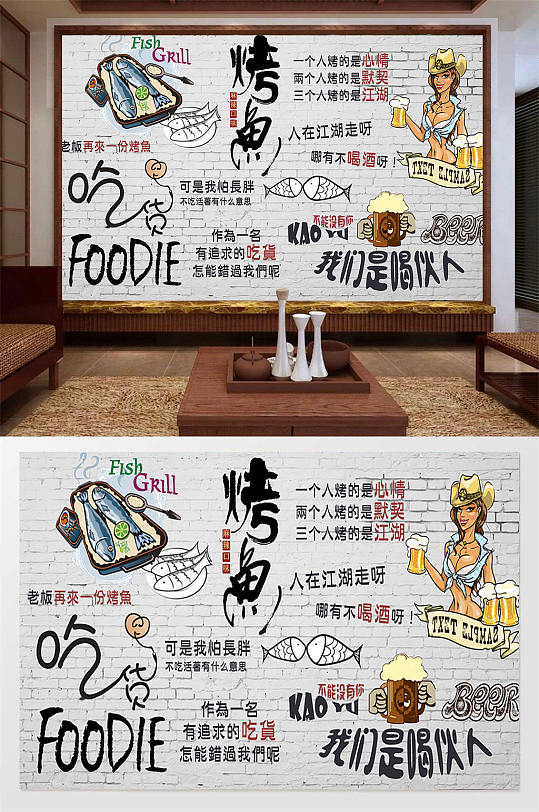 Fish
GRILL
烤魚
麻辣口味
一个人烤的是心情
两个人烤的是默契
三个人烤的是江湖
人在江湖走呀
哪有不喝酒呀！
SAMPLE TEXT
老板再來一份烤魚
吃货
可是我怕長胖
不吃活著有什么意思
FOODIE
作為一名
有追求的吃貨
怎能錯過我們呢
不能没有你
KAO YU
BEER
我们是喝伙人
Fish
GRILL
烤魚
麻辣口味
一个人烤的是心情
两个人烤的是默契
三个人烤的是江湖
人在江湖走呀
哪有不喝酒呀！
SAMPLE TEXT
老板再來一份烤魚
吃货
可是我怕長胖
不吃活著有什么意思
FOODIE
作為一名
有追求的吃貨
怎能錯過我們呢
不能没有你
KAO YU
BEER
我们是喝伙人